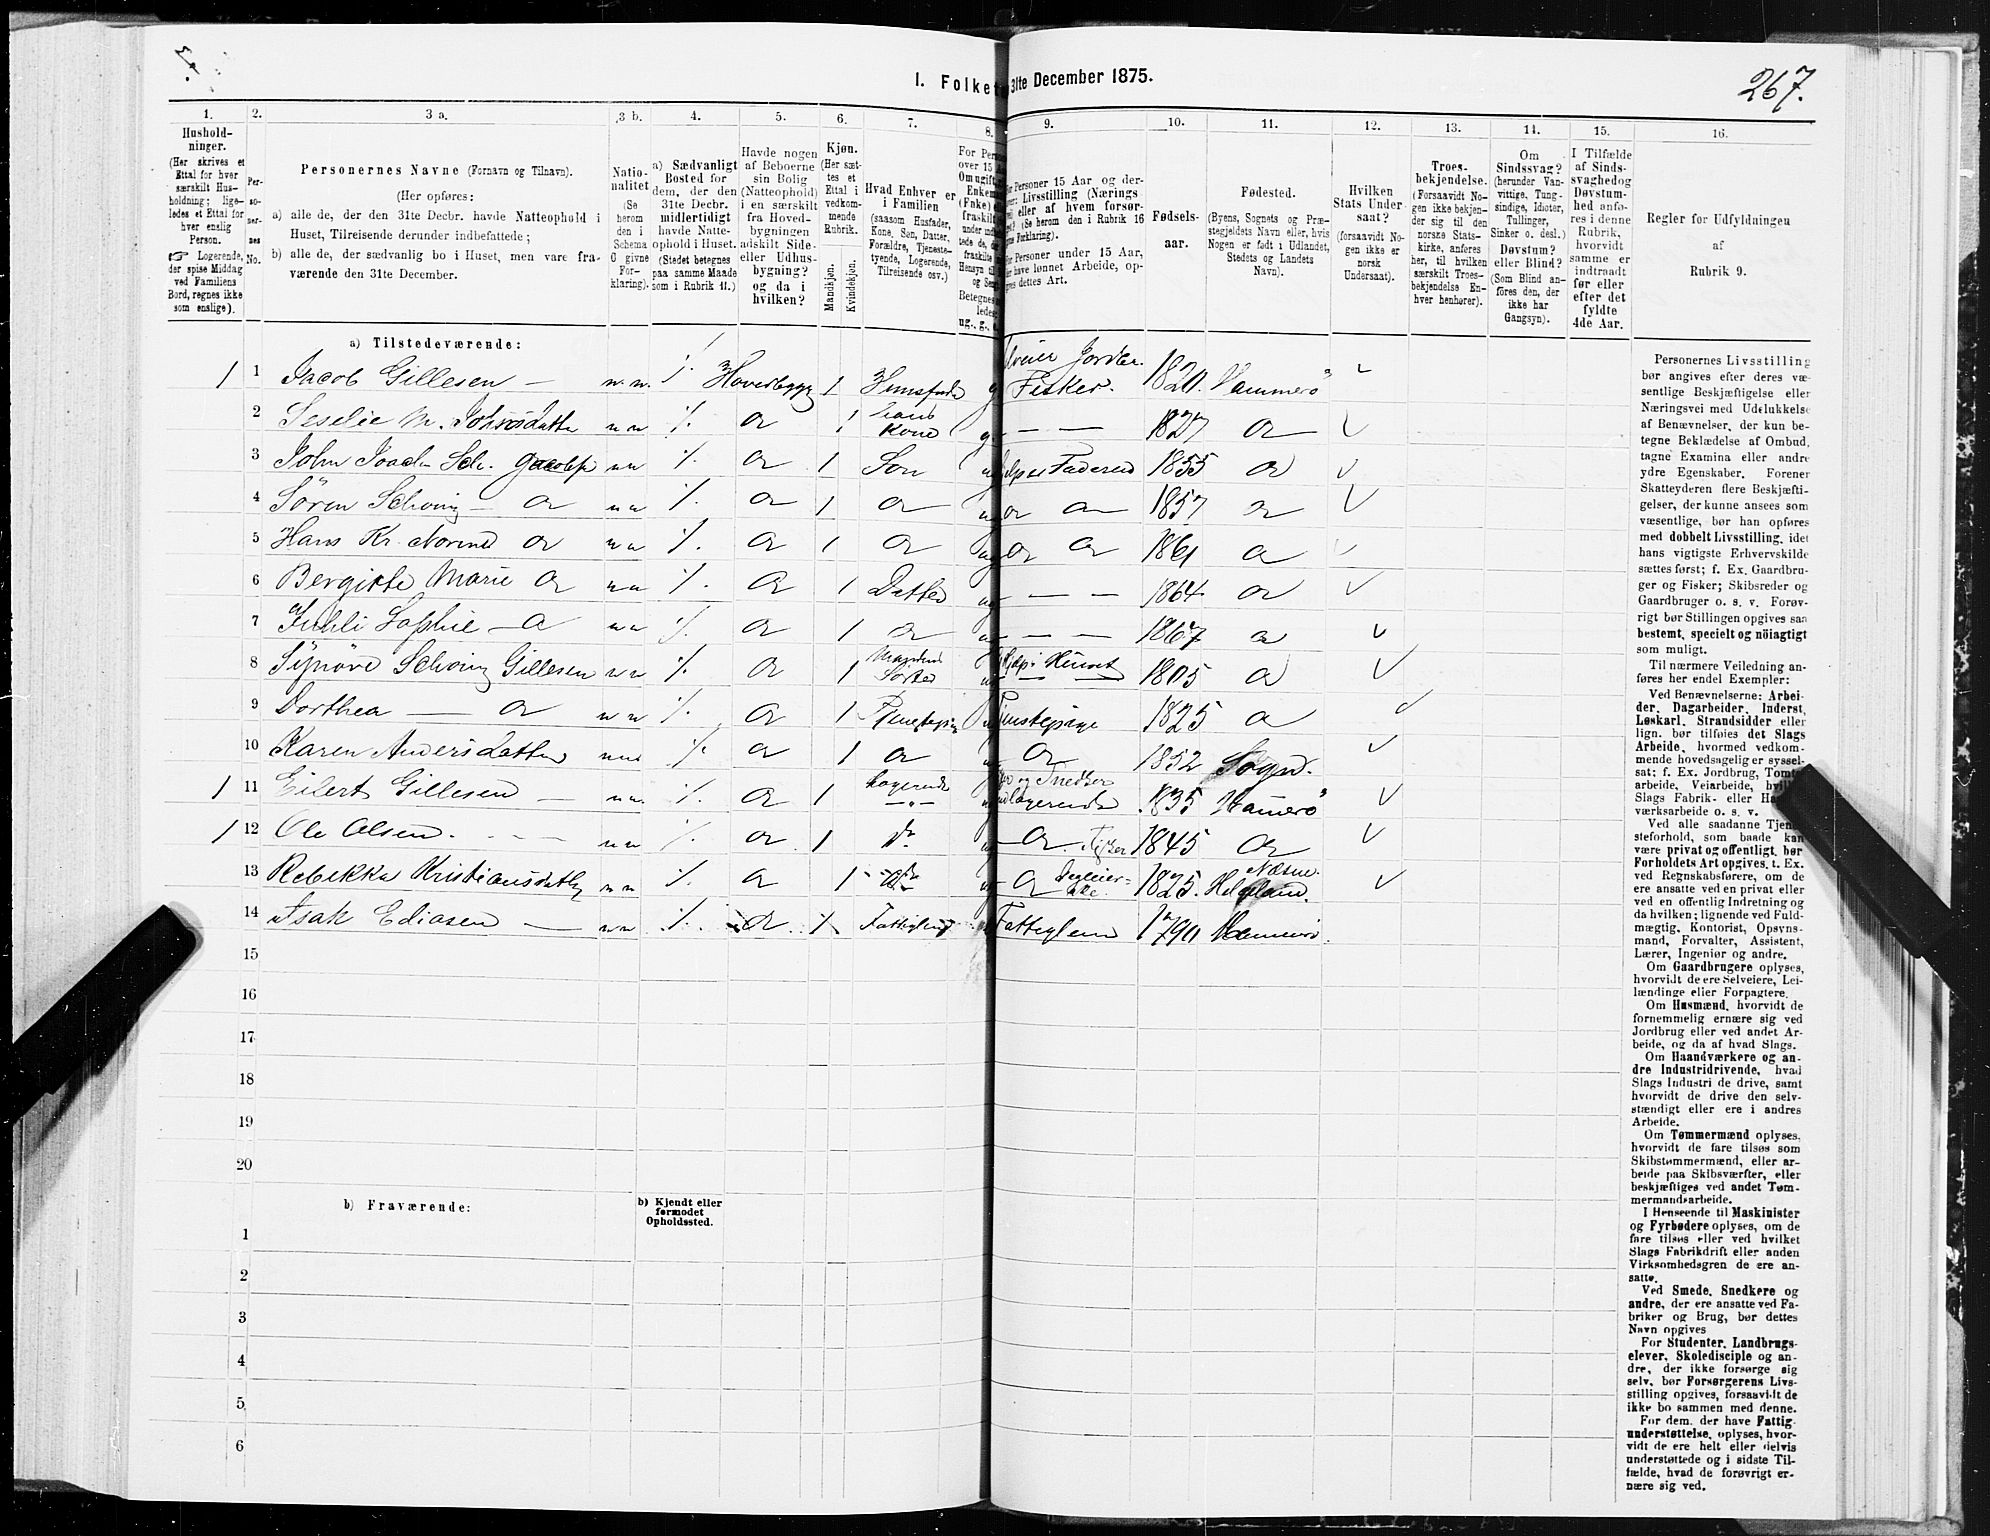 267.
I. Folket
31te December 1875.
1.
2.
3 a.
3 b.
4.
5.
6.
7.
8.
9.
10.
11.
12.
13.
14.
15.
16.
Hushold-
ninger.
(Her skrives et
Ettal for hver
særskilt Hus-
holdning; lige-
ledes et Ettal for
hver enslig
Person.
☞ Logerende,
der spise Middag
ved Familiens
Bord, regnes ikke
som enslige).
Per-
so-
ner-
nes
No.
Personernes Navne (Fornavn og Tilnavn).
(Her opføres:
a) alle de, der den 31te Decbr. havde Natteophold i
Huset, Tilreisende derunder indbefattede;
b) alle de, der sædvanlig bo i Huset, men vare fra-
værende den 31te December.
Natio-
nalitet
(Se
herom
den i
Schema
C givne
For-
klaring).
a) Sædvanligt
Bosted for
dem, der den
31te Decbr.
midlertidigt
havde Natte-
ophold i Huset.
(Stedet betegnes
paa samme Maade
som i Rubrik 11.)
Havde nogen
af Beboerne
sin Bolig
(Natteophold)
i en særskilt
fra Hoved-
bygningen
adskilt Side-
eller Udhus-
bygning?
og da i
hvilken?
Kjøn.
(Her sæt-
tes et
Ettal i
vedkom-
mende
Rubrik.
Mandkjøn.
Kvindekjøn.
Hvad Enhver er
i Familien
(saasom Husfader,
Kone, Søn, Datter,
Forældre, Tjeneste-
tyende, Logerende,
Tilreisende osv.)
For Pers
over 15 A
Om ugift,
Enkem
(Enke) e
fraskilt
For Personer 15 Aar og der-
Livsstilling (Nærings-
eller af hvem forsør-
(Se herom den i Rubrik 16
Forklaring).
Personer under 15 Aar,
have lønnet Arbeide, op-
dettes Art.
Fødsels-
aar.
Fødested.
(Byens, Sognets og Præ-
stegjeldets Navn eller, hvis
Nogen er født i Udlandet,
Stedets og Landets
Navn).
Hvilken
Stats Under-
saat?
(forsaavidt No-
gen ikke er
norsk
Undersaat).
Troes-
bekjendelse.
(Forsaavidt No-
gen ikke bekjen-
der sig til den
norske Stats-
kirke, anføres
her, til hvilken
særskilt Troes-
bekjendelse En-
hver henhører).
Om
Sindssvag?
(herunder Van-
vittige, Tung-
sindige, Idioter,
Tullinger,
Sinker o. desl.)
Døvstum?
eller Blind?
(Som Blind an-
føres den, der
ikke har
Gangsyn).
I Tilfælde
af Sinds-
svaghed og
Døvstum-
hed anfø-
res i denne
Rubrik,
hvorvidt
samme er
indtraadt
før eller
efter det
fyldte
4de Aar.
Regler for Udfyldningen
af
Rubrik 9.
a) Tilstedeværende:
1 1 Jacob Gillesen — n. n. ./. Hovedbygg 1 Husfader g Fisker. 1820. Hammerø
2 n n ./. a 1 hans Kone g — — 1827 a
3 n n ./. a 1 Søn 1855 a
4 Sören Schøning — a n n ./. a 1 a a a 1857 a
5 Hans Kr. a n n ./. a 1 a a a 1861 a
6 Bergitte Marie a n n ./. a 1 Datter — — 1864 a
7 Sophie — a n n ./. a 1 a — — 1867 a
8 Synøve Schøning Gillesen n n ./. a 1 Søster Hjelp i Huset 1805 a
9 Dorthea — a n n ./. a 1 Tjenestepige 1825 a
10 Karen Andersdatter n n ./. a 1 a a 1852 Sogn.
1 11 Eilert Gillesen — n n ./. a 1 Logerende og Snedker logerende 1835 Hamerø
1 12 Ole Olsen. n n ./. a 1 do a Fisker 1845 a
13 Rebekka Kristiansdatter n n ./. a 1 a 1825. Næsne Helgeland.
14 Isak Ediasen — n n ./. a 1 Fattiglem Fattiglem 1790 Hamerø.
15
16
17
18
19
20
b) Fraværende:
b) Kjendt eller
formodet
Opholdssted.
1
2
3
4
5
6
Personernes Livsstilling
bør angives efter deres væ-
sentlige Beskjæftigelse eller
Næringsvei med Udelukkelse
af Benævnelser, der kun be-
tegne Beklædelse af Ombud,
tagne Examina eller andre
ydre Egenskaber. Forener
Skatteyderen flere Beskjæfti-
gelser, der kunne ansees som
væsentlige, bør han opføres
med dobbelt Livsstilling, idet
hans vigtigste Erhvervskilde
sættes først; f. Ex. Gaardbru-
ger og Fisker; Skibsreder og
Gaardbruger o. s. v. Forøv-
rigt bør Stillingen opgives saa
bestemt, specielt og nöiagtigt
som muligt.
Til nærmere Veiledning an-
føres her endel Exempler:
Ved Benævnelserne: Arbei-
der, Dagarbeider, Inderst,
Løskarl, Strandsidder eller
lign. bør tilføies det Slags
Arbeide, hvormed vedkom-
mende hovedsagelig er syssel-
sat; f. Ex. Jordbrug, Tomt
arbeide, Veiarbeide, hvil
Slags Fabrik- eller Ha
værksarbeide o. s. v.
Ved alle saadanne Tjen
steforhold, som baade kan
være privat og offentligt, bør
Forholdets Art opgives, t. Ex.
ved Regnskabsførere, om de
ere ansatte ved en privat eller
ved en offentlig Indretning og
da hvilken; lignende ved Fuld-
mægtig, Kontorist, Opsyns-
mand, Forvalter, Assistent,
Lærer, Ingeniør og andre.
Om Gaardbrugere oplyses,
hvorvidt de ere Selveiere, Lei-
lændinge eller Forpagtere.
Om Husmænd, hvorvidt de
fornemmelig ernære sig ved
Jordbrug eller ved andet Ar-
beide, og da af hvad Slags.
Om Haandværkere og an-
dre Industridrivende, hvad
Slags Industri de drive, samt
hvorvidt de drive den selv-
stændigt eller ere i andres
Arbeide.
Om Tømmermænd oplyses,
hvorvidt de fare tilsøs som
Skibstømmermænd, eller ar-
beide paa Skibsværfter, eller
beskjæftiges ved andet Tøm-
mermandsarbeide.
I Henseende til Maskinister
og Fyrbødere oplyses, om de
fare tilsøs eller ved hvilket
Slags Fabrikdrift eller anden
Virksomhedsgren de ere an-
satte.
Ved Smede, Snedkere og
andre, der ere ansatte ved Fa-
briker og Brug, bør dettes
Navn opgives
For Studenter, Landbrugs-
elever, Skoledisciple og an-
dre, der ikke forsørge sig
selv, bør Forsørgerens Livs-
stilling opgives, forsaavidt de
ikke bo sammen med denne.
For dem, der have Fattig-
understøttelse, oplyses, hvor-
vidt de ere helt eller delvis
understøttede og i sidste Til-
fælde, hvad de forøvrigt er-
nære sig ved.